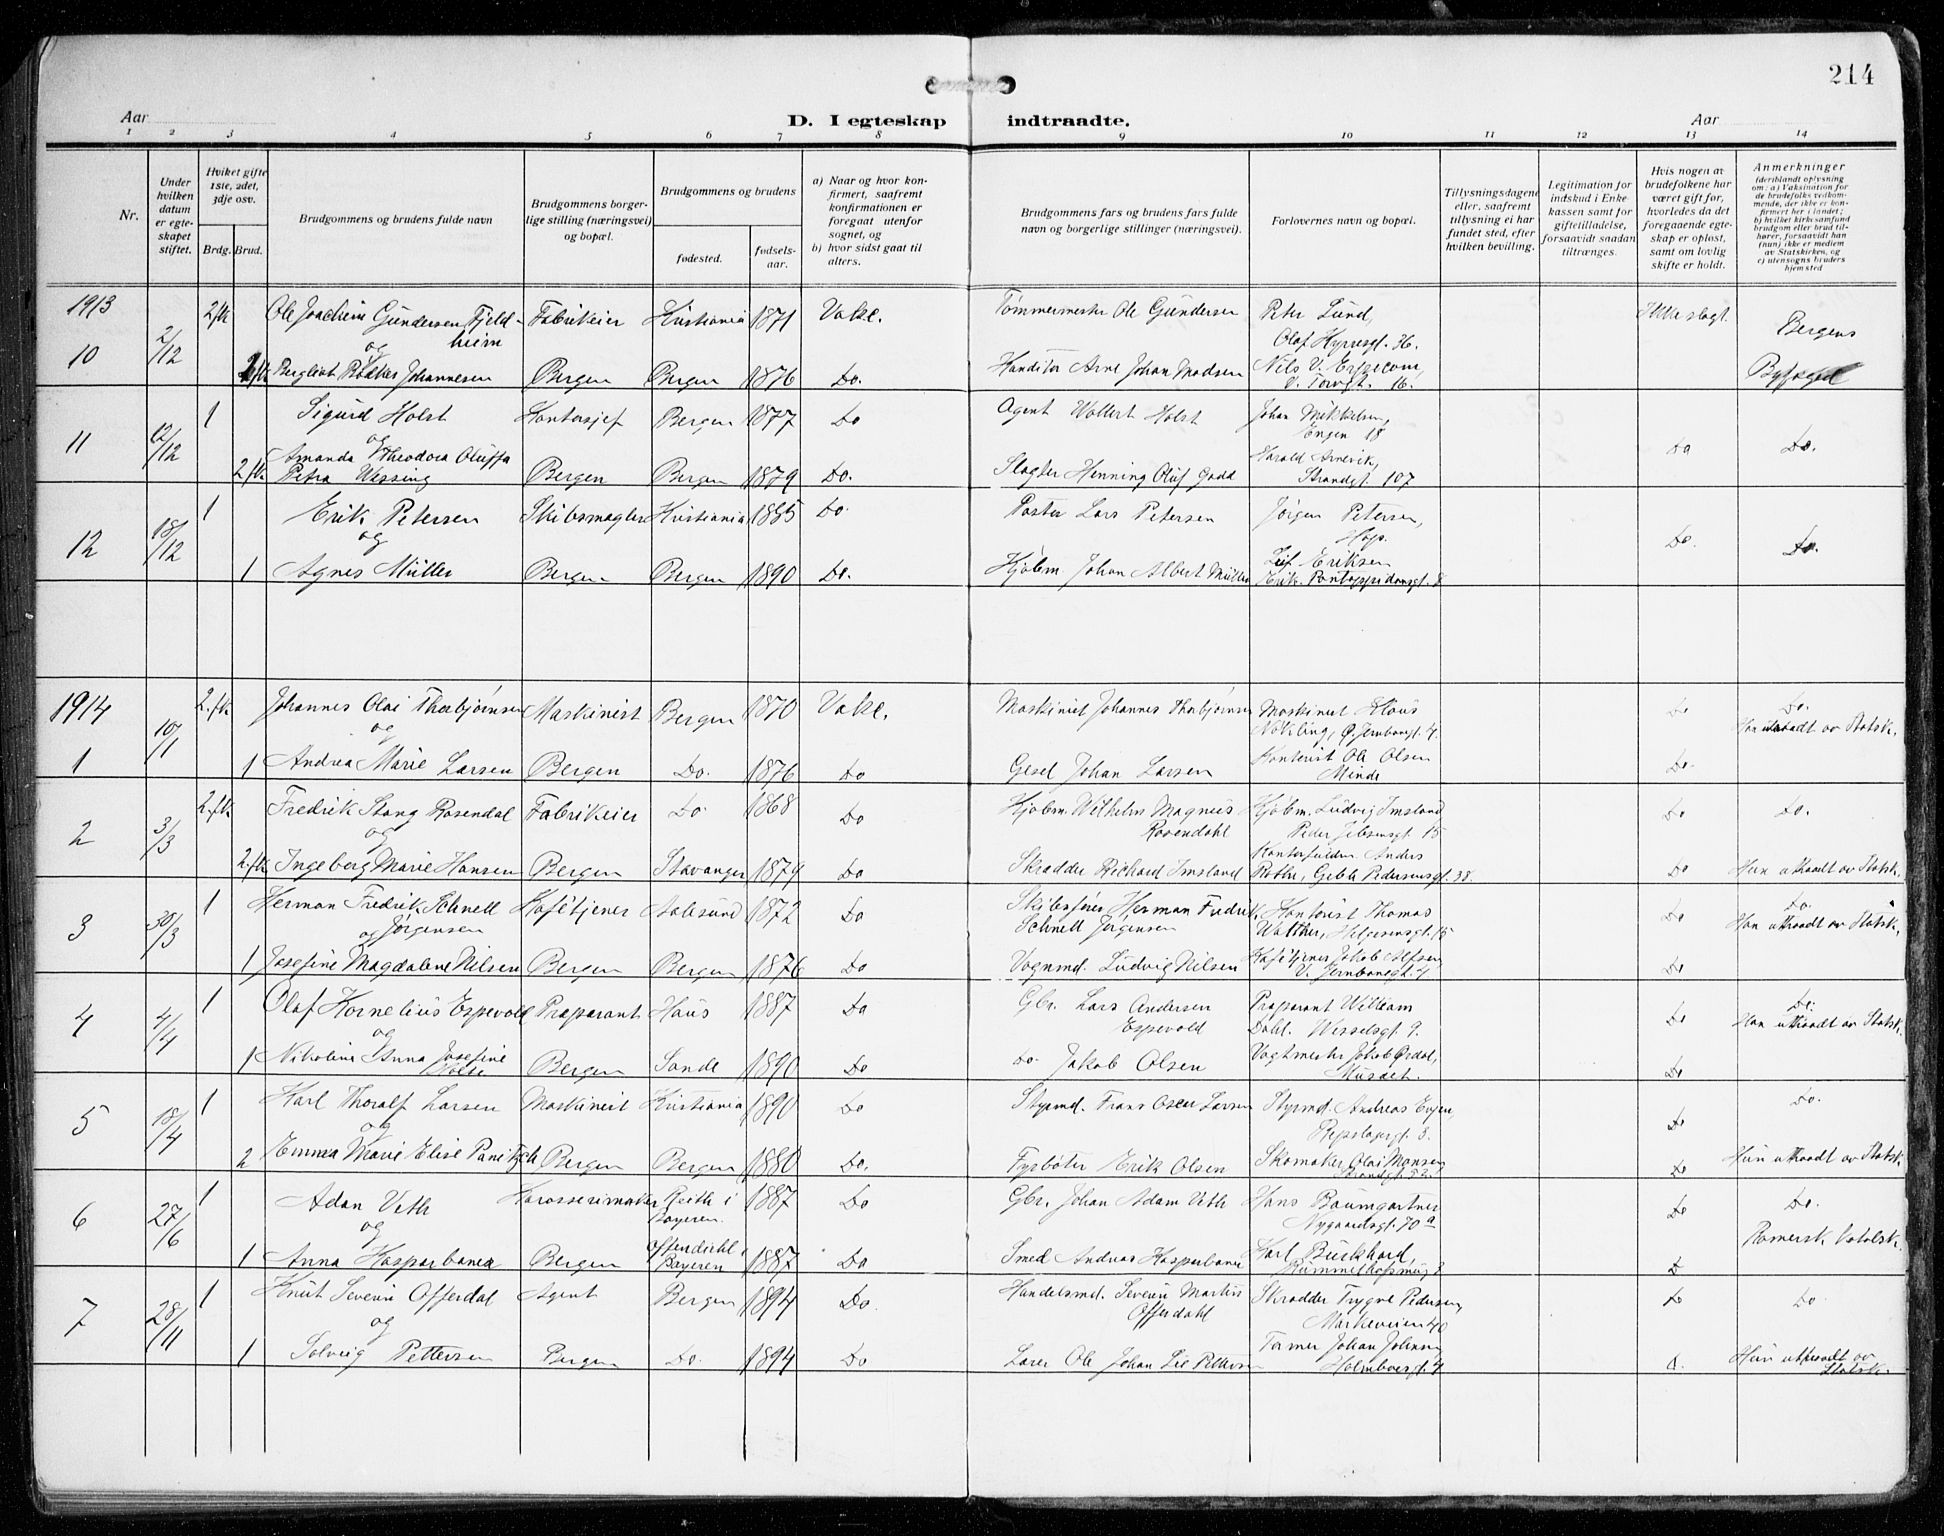 214
Aar
D. I egteskap indtraadte.
Aar
1 2 3 4 5 6 7 8 9 10 11 12 13 14
Nr.
Under hvilken datum er egteskapet stiftet.
Hviket gifte 1ste, 2det, 3dje osv.
Brdg. Brud.
Brudgommens og brudens fulde navn
Brudgommens borgerlige stilling (næringsvei) og bopæl.
Brudgommens og brudens
fødested.
fødselsaar.
a) Naar og hvor konfirmert, saafremt konfirmationen er foregaat utenfor sognet, og
b) hvor sidst gaat til alters.
Brudgommens fars og brudens fars fulde navn og borgerlige stillinger (næringsvei).
Forlovernes navn og bopæl.
Tillysningsdagene eller, saafremt tillysning ei har fundet sted, efter hvilken bevilling.
Legitimation for indskud i Enkekassen samt for giftetilladelse, forsaavidt saadan tiltrænges.
Hvis nogen av brudefolkene har været gift før, hvorledes da det foregaaende egteskap er opløst, samt om lovlig skifte er holdt.
Anmerkninger (deriblandt oplysning om: a) Vaksination for de brudefolks vedkommende, der ikke er konfirmert her i landet; b) hvilket kirkesamfund brudgom eller brud tilhører, forsaavidt han (hun) ikke er medlem av Statskirken, og c) utensogns bruders hjemsted
1913 2/12 2 fk Ole Joachim Gundersen Fjeldheim Fabrikeier Kristiania 1871 Tømmermester Ole Gundersen Peter Lund, Ikke slegt. Bergens
og Olaf Kyrresgt. 36.
10 Johannesen Bergen Bergen 1876 Do. Arne Johan Madsen Nils V. V. Torvgt. 16.
11 12/12 1 Sigurd Holst Kontorsjef Bergen 1877 Do Agent Wollert Holst Johan Mikkelsen, Engen 18
og
2 fk. Amanda Theodora Oluffa Petra Wessing Bergen Bergen 1879 Do. Slagter Henning Oluf Gade Harald Strandgt. 107 Do Do.
12 18/12 1 Erik Petersen Skibsmægler Kristiania 1885 Do. Pastor Lars Petersen Jörgen Petersen, Hop.
og
1 Agnes Müller Bergen Bergen 1890 Do. Kjöbm Johan Albert Müller Leif Eriksen Erik Pontoppidansgt. 8 Do. Do.
1914 10/1 2. fk. Johannes Olai Thorbjørnsen Maskinist Bergen 1870 Maskinist Johannes Thorbjørnsen Maskinist Klaus Ø. Jernbanegt. 4. Do Do. Han utraadt av Statsk.
og
1 1 Andrea Marie Larsen Bergen Do. 1876 Do Johan Larsen Kontorist Ole Olsen Minde Do.
2 3/3 2. fk. Fredrik Stang Rosendal Fabrikeier Do. 1868 Do Kjöbm. Wilhelm Magnus Rosendahl Kjöbm. Ludvig Imsland Peder Jebsensgt. 15 Do Do.
og
2. fk Ingeborg Marie Hansen Bergen Stavanger 1879 Do Skrædder Richard Imsland Anders Gøble Pedersensgt. 38. Do Hun uttraadt av Statsk.
3 30/3 1 Herman Fredrik Schnell Jørgensen Kafétjener Aalesund 1872 Do Skibsfører Herman Fredrik Schnell Jørgensen Kontorist Thomas Walther, Helgesensgt. 15 Do Do. Han uttraadt av Statsk.
og
1 Josefine Magdalene Nilsen Bergen Bergen 1876 Do Vognmd. Ludvig Nilsen Kafétjener Jakob V. Jernbanegt. 4 Do
4 4/4 1 Olaf Kornelius Espevold Præparant Haus 1887 Do Gbr. Lars Andersen Espevold Præparant William Dahl. Wesselsgt. 9. Do Do. Han uttraadt av Statsk.
og
1 Nikoline Anna Josefine Bergen Sande 1890 Do Do. Jakob Olsen Vagtmester Jakob Museet. Do
5 18/4 1 Karl Thoralf Larsen Maskinist Kristiania 1890 Do Styrmd. Frans Oscar Larsen Styrmd. Andreas Repslagergt. 3. Do Do.
og
2 Emma Marie Elise Bergen Bergen 1880 Do. Erik Olsen Skomaker Olai Monsen Strandgt. 52. Do Hun uttraadt av Statsk.
6 27/6 1 Adam Veth Karosserimaker i Bayeren. 1887 Do Gbr. Johan Adam Veth Hans Baumgartner Nygaardsgt. 70a Do Do.
og Romersk Katolsk.
1 Anna Kasparbauer Bergen Bayeren 1887 Do Smed Andreas Kasparbauer Karl Burkhard,
7 28/11 1 Knut Severin Offerdal Agent Bergen 1894 Do. Handelsmd. Severin Martin Offerdahl Skrædder Trygve Pedersen, Markeveien 40 Do Do.
og
1 Solveig Pettersen Bergen Do. 1894 Do Lærer Ole Johan Johan Johnsen Holmboesgt. 4 Hun uttraadt av Statsk.